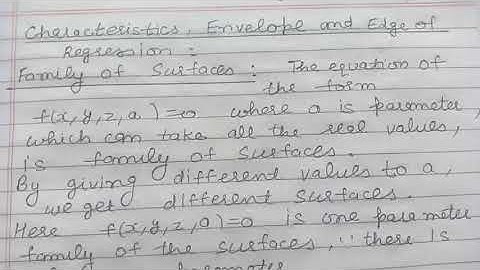 Characteristics, Envelope and Edge of
Regression :
Family of Surfaces : The equation of
the form
f(x, y, z, a) = 0 where a is parameter,
which can take all the real values,
is family of surfaces.
By giving different values to a,
we get different surfaces.
Here f(x, y, z, a) = 0 is one parameter
family of the surfaces, ∵ there is